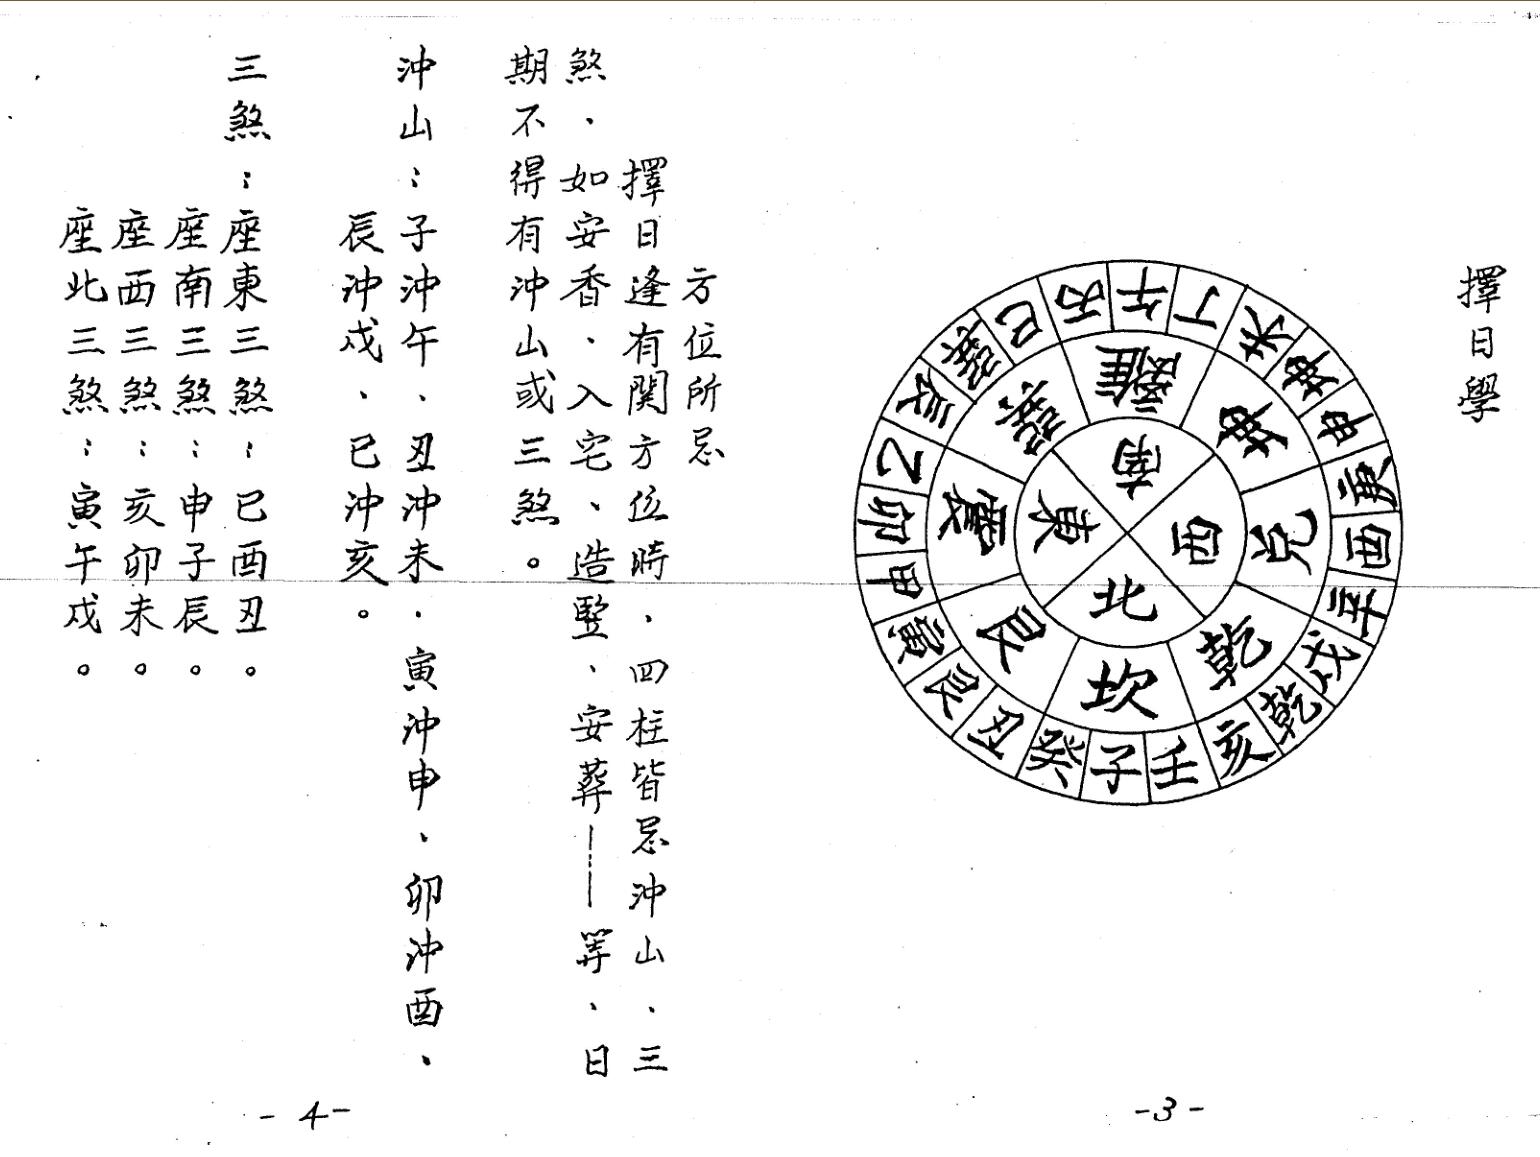 擇日學
南
西
北
東
離
坤
兌
乾
坎
艮
震
巽
午
丁
未
坤
申
庚
酉
辛
戌
乾
亥
壬
子
癸
丑
艮
寅
甲
卯
乙
辰
巽
巳
丙
-3-
方位所忌
擇日逢有関方位時、四柱皆忌沖山、三
煞、如安香、入宅、造竪、安葬——等、日
期不得有沖山或三煞。
沖山：子沖午、丑沖未、寅沖申、卯沖酉、
辰沖戌、巳沖亥。
三煞：座東三煞：巳酉丑。
座南三煞：申子辰。
座西三煞：亥卯未。
座北三煞：寅午戌。
-4-